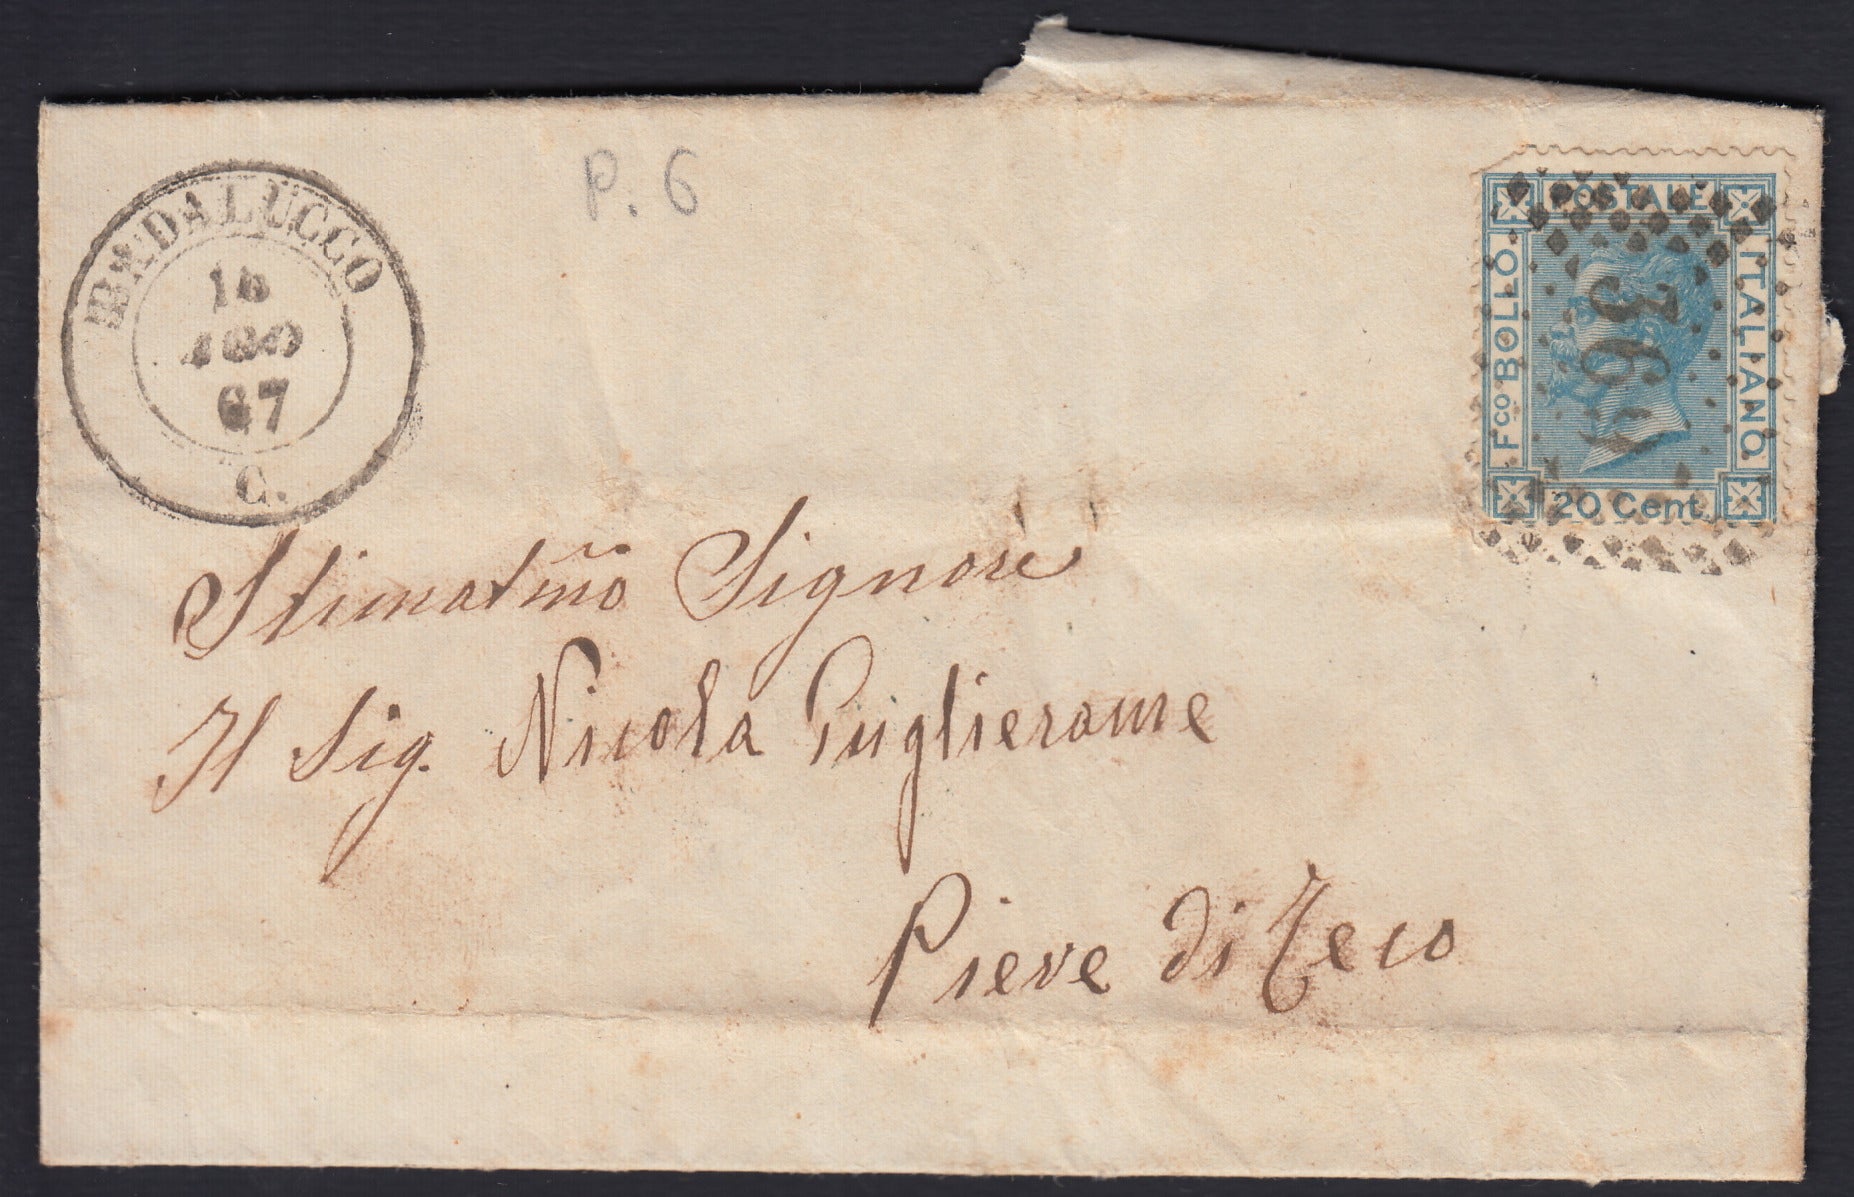 P. 6
BADALUCCO
AGO
67
C.
POSTALE
Fco BOLLO
ITALIANO
20 Cent.
Stimatmo Signore
Il Sig. Nicola Puglierame
Pieve di Teco